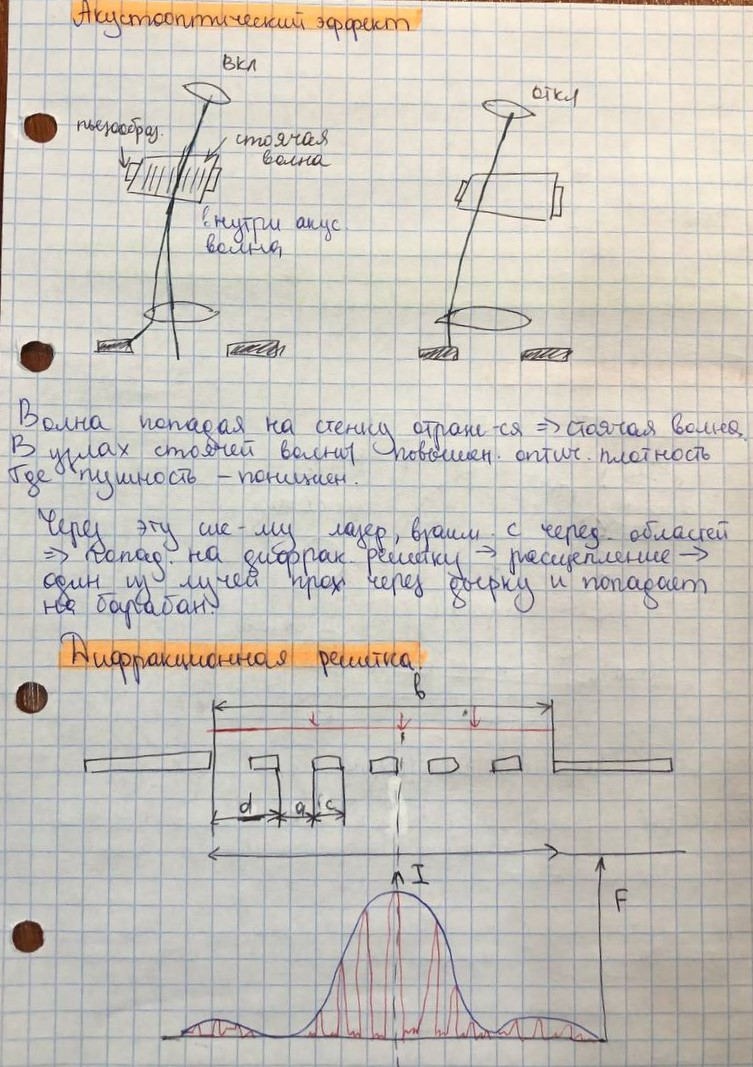 Акустооптический эффект
ВКЛ
ОТКЛ
пьезообраз.
стоячая
волна
внутри акус.
волна
Волна попадая на стенку отраж-ся => стоячая волна.
В узлах стоячей волны повышен. оптич. плотность
Где пушность – понижен.
Через эту сис-му лазер, взаим. с черед. областей
=> попад. на дифрак. решетку → расщепление →
один из лучей прох через дырку и попадает
на барабан.
Дифракционная решетка.
в
d a c
I
F